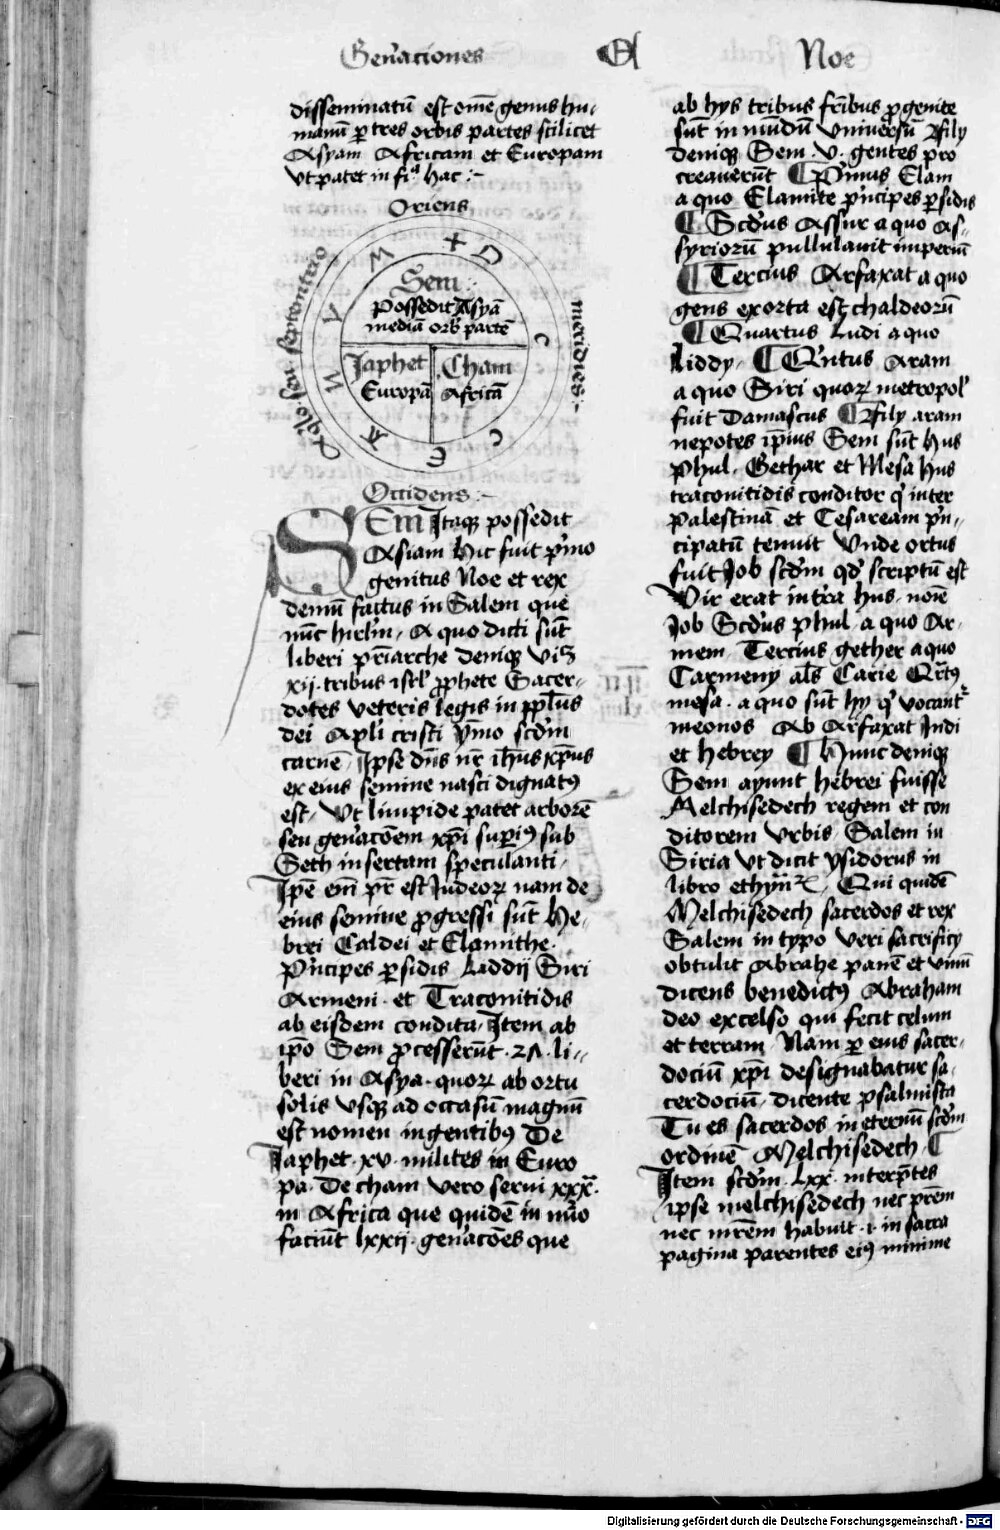 Gen̄aciones
Noe
disseminatū est om̄e genus hu-
manū ꝑ tres orbis partes scilicet
Asyam Africam et Europam
Vt patet in fiᵃ hac :-
Oriens
Sem :
possedit Asyā
mediā orb' partē
Japhet
Europā
Cham
Africā
Aq̄lo seu septentrio
meridies :-
Occidens :-
SEm Itaqꝫ possedit
Asiam Hic fuit p'mo
genitus Noe et rex
demū factus in Salem que
nūc hirl'm, A quo dicti sūt
liberi pr̄iarche deniqꝫ
xij. tribus isrl' ꝓphete Sacer-
dotes veteris legis in ppl'us
dei Apl'i cristi ȳmo scd'm
carnē, Ipse dn̄s nr̄ ih̄us xp̄us
ex eius semine nasci dignatꝰ
est, Vt limpide patet arborē
seu gen̄acōem xp̄i supiꝰ sub
Seth insertam speculanti,
Ip̄e em̄ pr̄ est Judeoꝝ nam de
eius semine ꝓgressi sūt He-
brei Caldei et Elamithe.
p'ncipes ꝑsidis Liddij Siri
Armeni. et Traconitidis
ab eisdem condita, Item ab
ip̄o Sem ꝓcesserūt .27. li-
beri in Asya. quoꝝ ab ortu
solis vsqꝫ ad occasū magnū
est nomen in gentibꝰ De
Japhet .xv. milites in Euro
pa. De cham vero serui xxx.
in Africa que quidē in mūo
faciūt lxxij. gen̄acōes que
ab hys tribus fr̄ibus ꝓgenite
sūt in mūdū vniuersū Fily
deniqꝫ Sem .v. gentes pro
creauerūt ¶ P'mus Elam
a quo Elamite p'ncipes ꝑsidis
¶ Scd'us Assur a quo As-
syriorū pullulauit imperiū
¶ Tercius Arfaxat a quo
gens exorta est chaldeorū
¶ Quartus Ludi a quo
Liddy, ¶ Q'ntus Aram
a quo Siri quoꝝ metropol'
fuit Damascus ¶ Fily aram
nepotes ip̄ius Sem sūt Hus
Phul. Gethar et Mesa Hus
traconitidis conditor q' inter
Palestinā et Cesaream p'n-
cipatū tenuit Vnde ortus
fuit Job scd'm qd' scriptū est
Vir erat in tr̄a hus, noīe
Job Scd'us phul. a quo Ar-
meni. Tercius gether a quo
Carmeny al's Carie Qr̄tꝰ
mesa. a quo sūt hy q' vocant'
meonos Ab Arfaxat Indi
et Hebrey ¶ Hunc deniqꝫ
Sem ayunt hebrei fuisse
Melchisedech regem et con
ditorem vrbis, Salem in
Siria vt dicit ysidorus in
libro ethym̄. Qui quidē
Melchisedech sacerdos et rex
Salem in typo veri sacrificy
obtulit Abrahe panē et vinū
dicens benedictꝰ Abraham
deo excelso qui fecit celum
et terram, Nam ꝑ eius sacer-
dociū xp̄i designabatur sa-
cerdociū, dicente psalmista
Tu es sacerdos in eternū scd'm
ordinē Melchisedech, ¶
Item scd'm. lxx. interp̄tes
ipse melchisedech nec pr̄em
nec mr̄em habuit .i. in sacra
pagina parentes eiꝰ minime
Digitalisierung gefördert durch die Deutsche Forschungsgemeinschaft - DFG